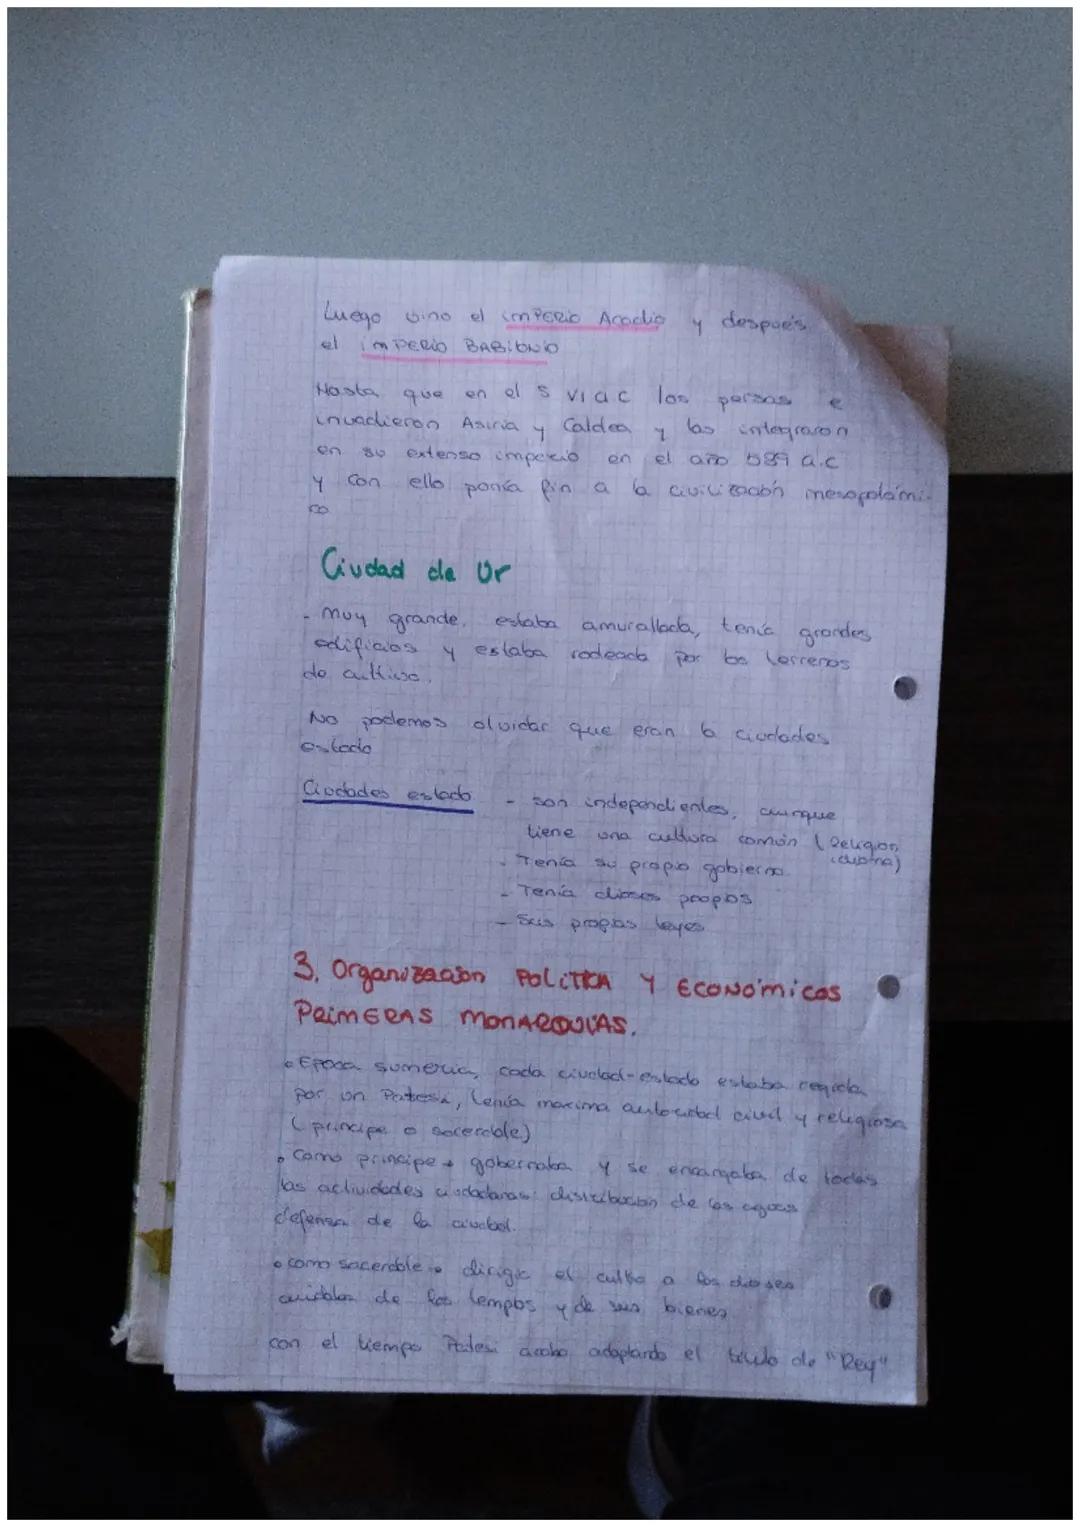 Luego vino el imPERio Acadio y después
el imPERio BABiloNio
Hasta que en el S VI a C los persas e
invadieron Asiria y Caldea y las integraron
en su extenso imperio en el año 539 a.C
y con ello ponía fin a la civilización mesopotámi-
ca
Ciudad de Ur
- Muy grande, estaba amurallada, tenía grandes
edificios y estaba rodeada por los terrenos
de cultivo.
No podemos olvidar que eran la ciudades
estado
Ciudades estado - son independientes, aunque
tiene una cultura común (Religion,
idioma)
- Tenía su propio gobierno
- Tenía dioses propios
- Sus propias leyes
3. Organización PoLiTICA Y ECONómicas
PRimERAS MONARQUíAS.
• Epoca sumeria, cada ciudad-estado estaba regida
por un Patesi, tenía maxima autoridad civil y religiosa
(principe o sacerdote)
• Como principe → gobernaba y se encargaba de todas
las actividades ciudadanas: distribución de las aguas
defensa de la ciudad.
• como sacerdote → dirigir el culto a los dioses
cuidaba de los templos y de sus bienes
con el tiempo Patesi acabo adoptando el titulo de "Rey"